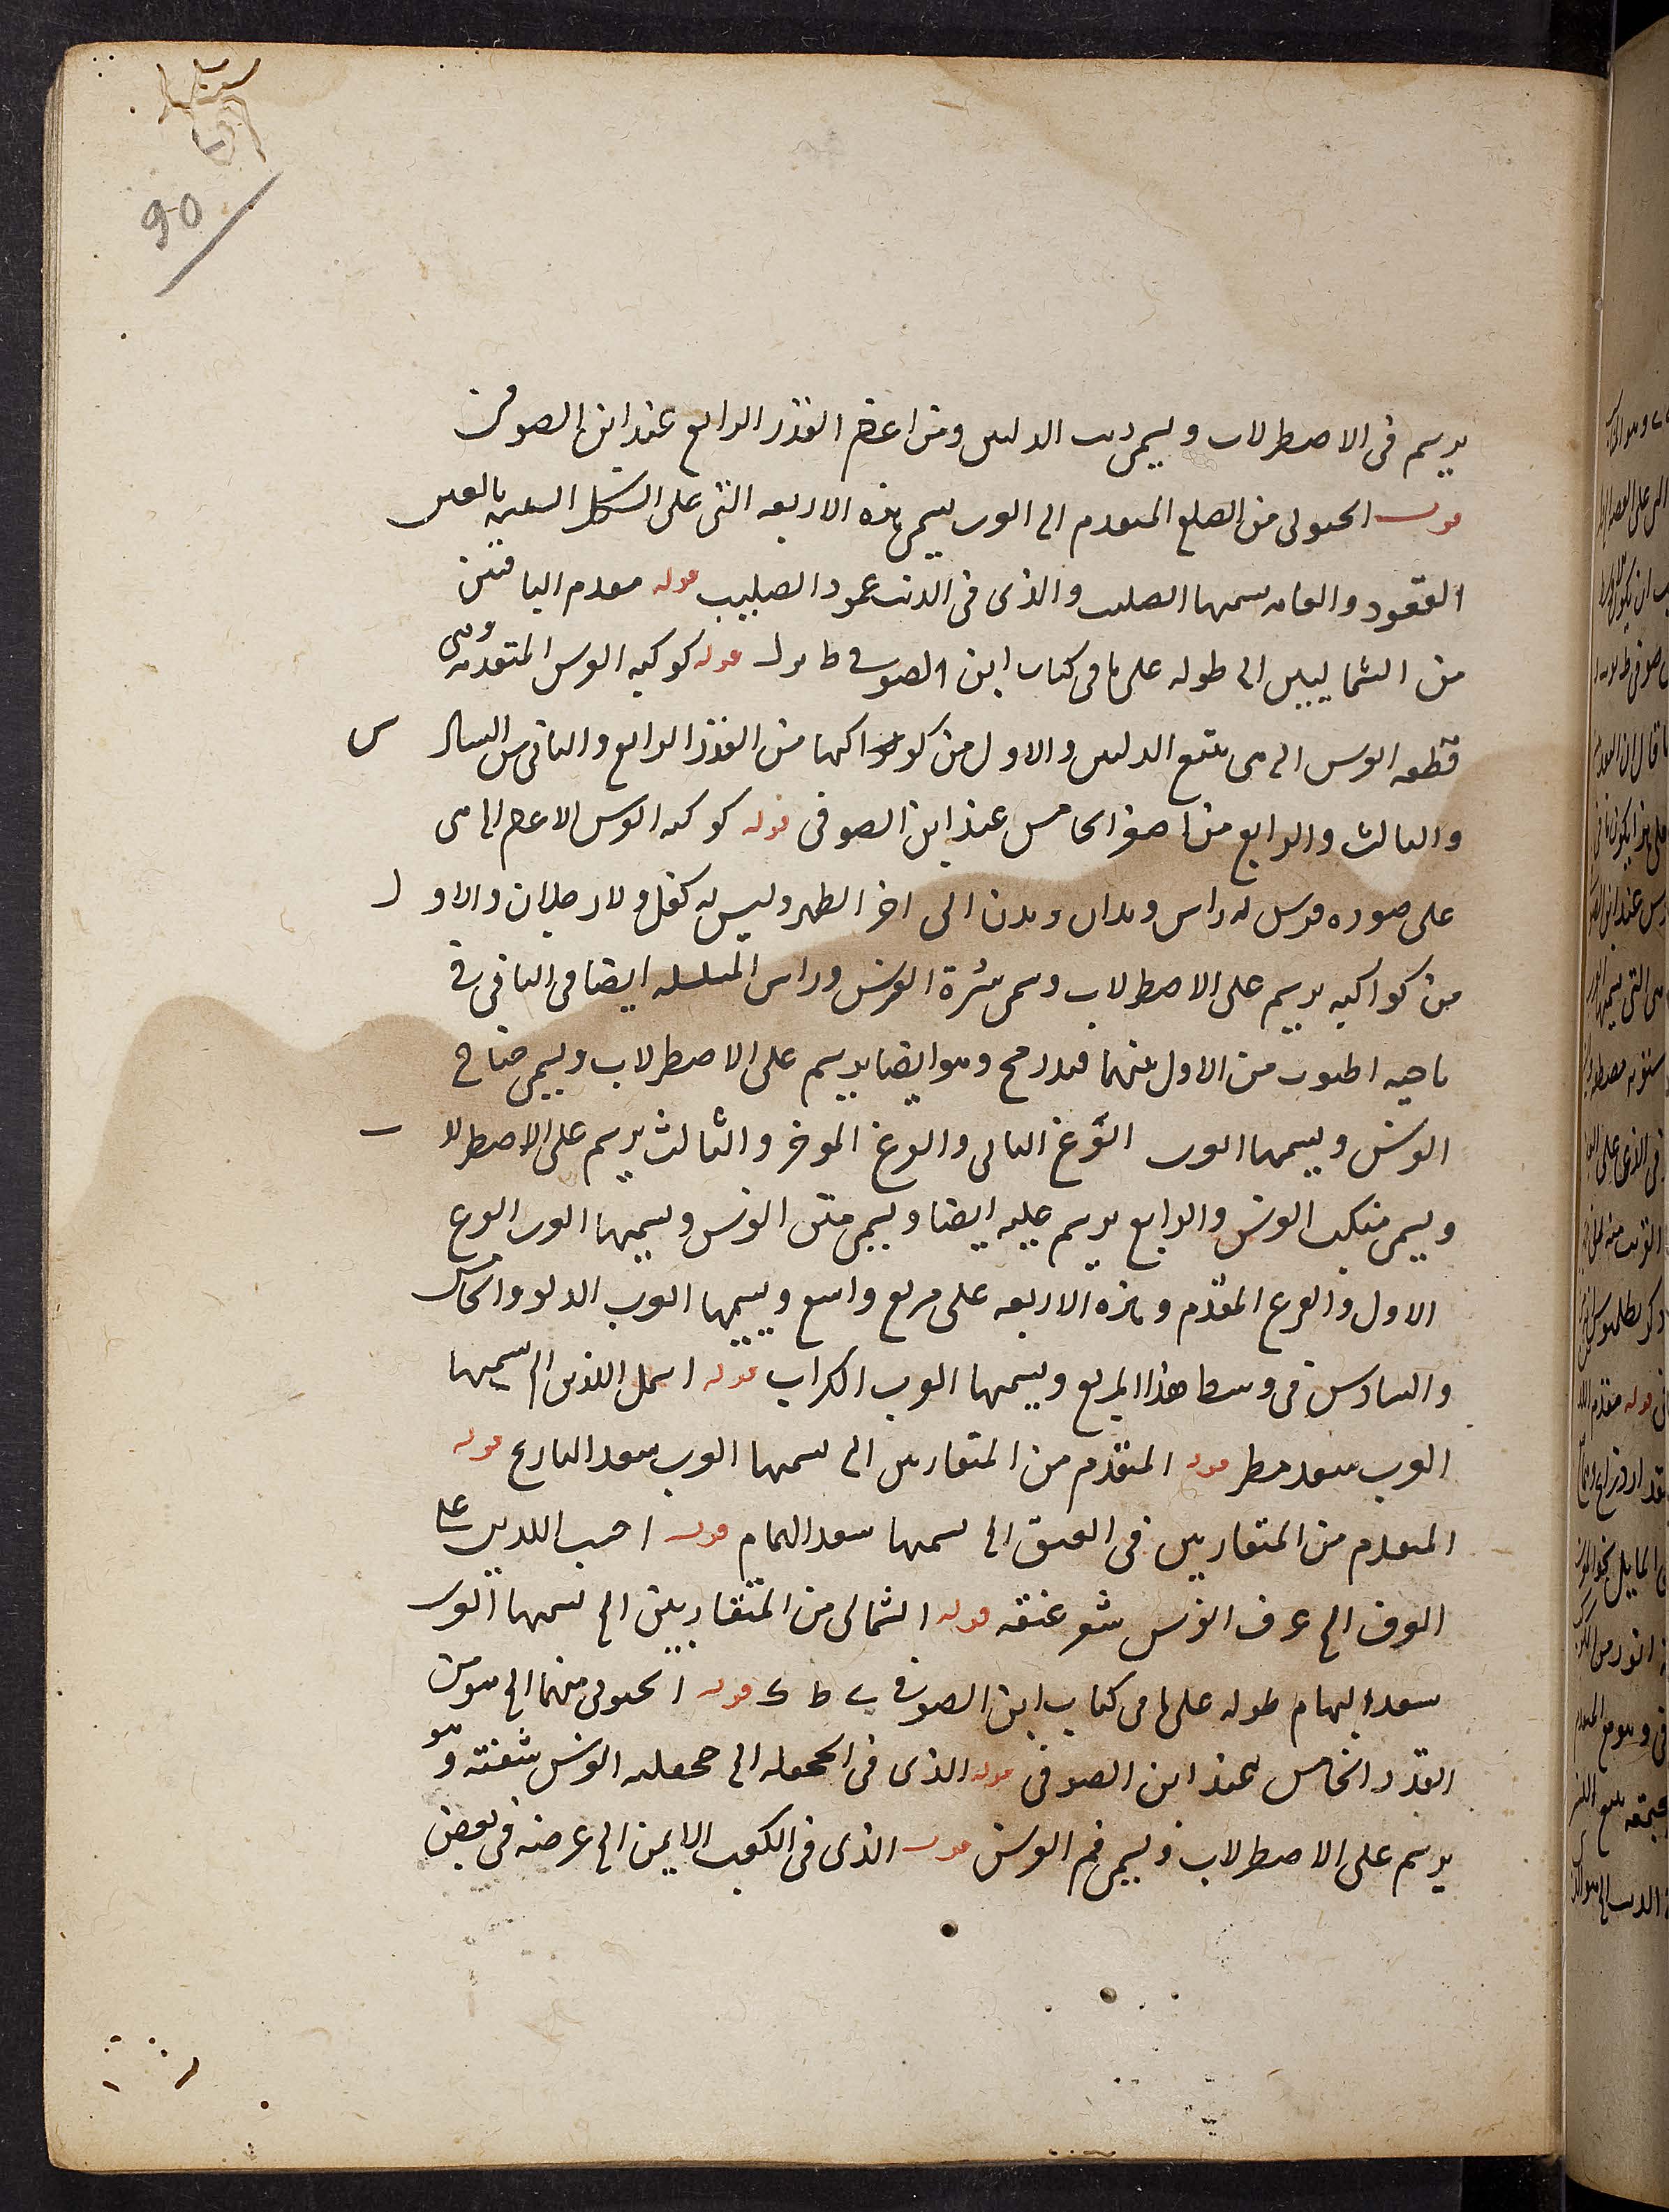 90
يرسم فى الاصطرلاب ويسمى ذنب الدلفين ومن اعظم القدر الرابع عند ابن الصوفى
قوله الجنوبى من الضلع المتقدم الخ العرب يسمى هذه الاربعه التى على الشكل الشبيه بالمعين
القعود والعامه يسميها الصليب والذى فى الذنب عمود الصليب قوله مقدم الباقيين
من الشماليين الخ طوله على ما فى كتاب ابن الصوفى ط قوله كوكبه الفرس المتقدمه وهى
قطعه الفرس الخ هى تتبع الدلفين والاول من كواكبها من القدر الرابع والثانى من السادس
والثالث والرابع من اصغر الخامس عند ابن الصوفى قوله كوكبه الفرس الاعظم الخ هى
على صوره فرس له راس ويدان وبدن الى اخر الظهر وليس له كفل ولا رجلان والاول
من كواكبه يرسم على الاصطرلاب ويسمى سرة الفرس وراس المسلسله ايضا فى الثانى فى
ناحيه الجنوب من الاول بينهما قيد رمح وهو ايضا يرسم على الاصطرلاب ويسمى جناح
الفرس ويسميها العرب الفرغ الثانى والفرغ الموخر والثالث يرسم على الاصطرلاب
ويسمى منكب الفرس والرابع يرسم عليه ايضا ويسمى متن الفرس ويسميها العرب الفرع
الاول والفرع المقدم وهذه الاربعه على مربع واسع ويسميها العرب الدلو والخامس
والسادس فى وسط هذا المربع ويسميها العرب الكرب قوله اسفل اللذين الخ يسميها
العرب سعد مطر قوله المتقدم من المتقاربين الخ يسميها العرب سعد البارع قوله
المتقدم من المتقاربين فى العنق الخ يسميها سعد الهمام قوله احنب اللذين على
العرف الخ عرف الفرس شعر عنقه قوله الشمالى من المتقاربين الخ يسميها العرب
سعد البهام طوله على ما فى كتاب ابن الصوفى ى ط ك قوله الجنوبى منهما الخ هو من
القدر الخامس عند ابن الصوفى قوله الذى فى الجحفله الخ جحفله الفرس شفته وهو
يرسم على الاصطرلاب ويسمى فم الفرس قوله الذى فى الكعب الايمن الخ عرضه فى بعض